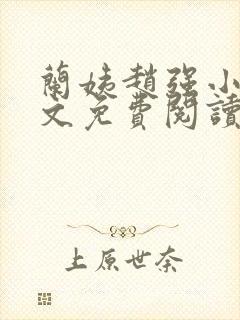 蘭姨趙强小
文免費閱讀
上原世奈